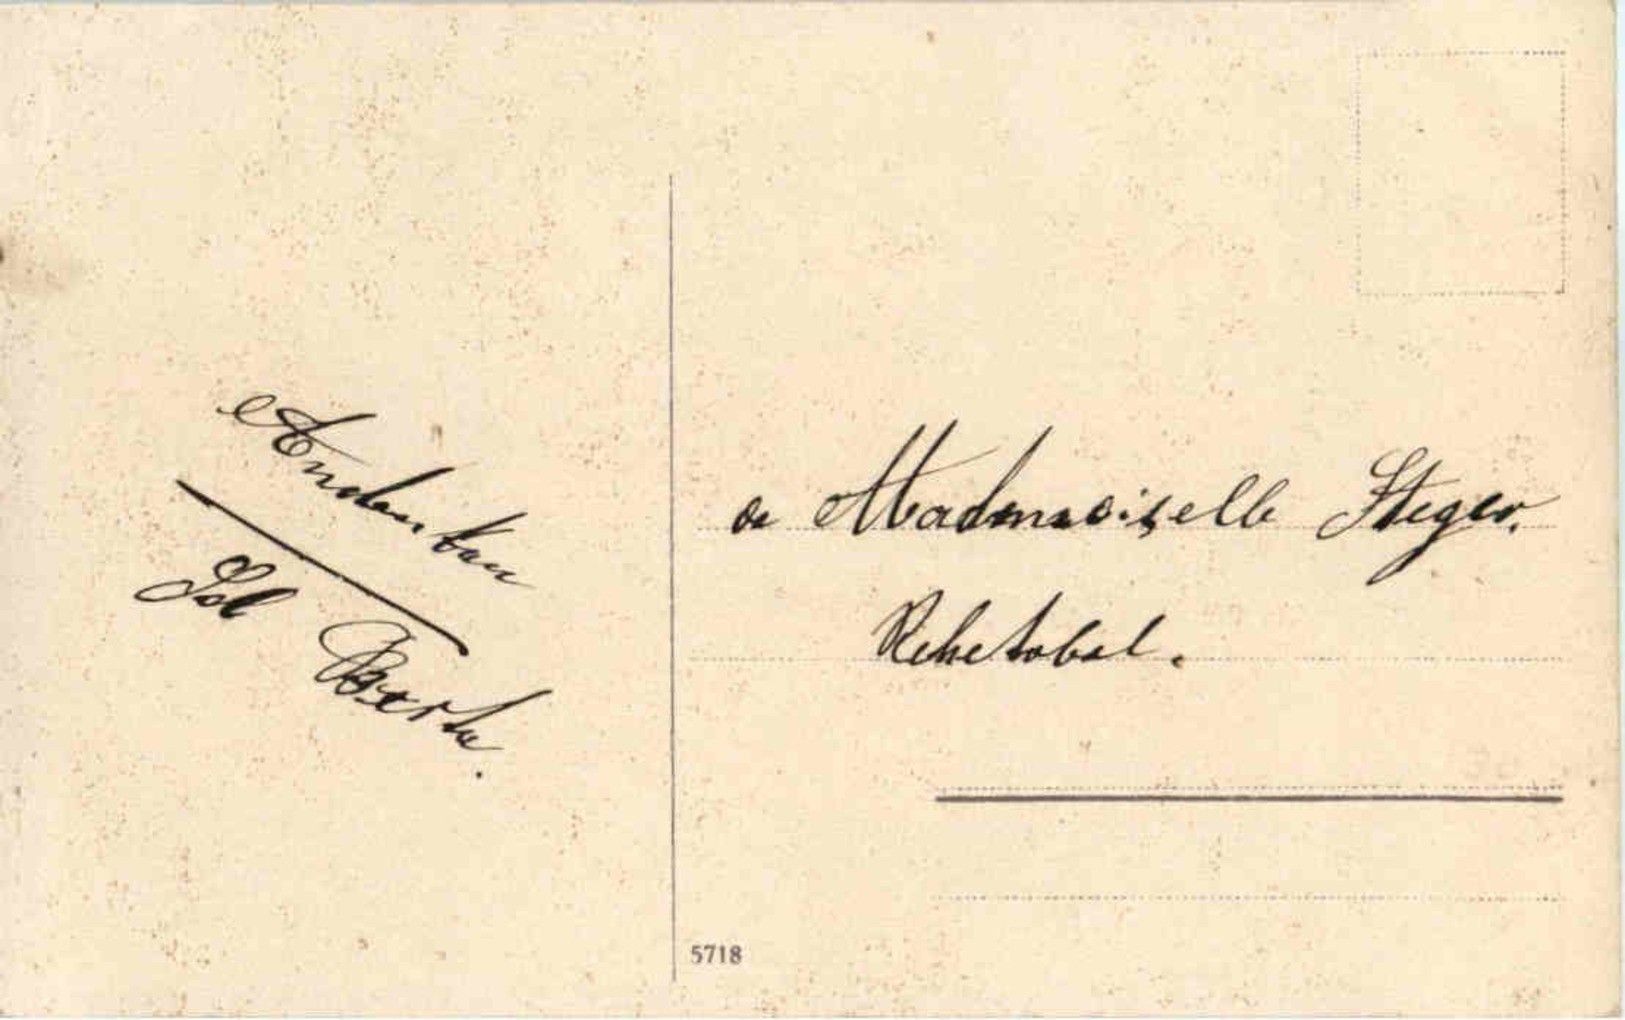 Andenken
Sol Berta.
a Mademoiselle Steger.
Rehetobel.
5718